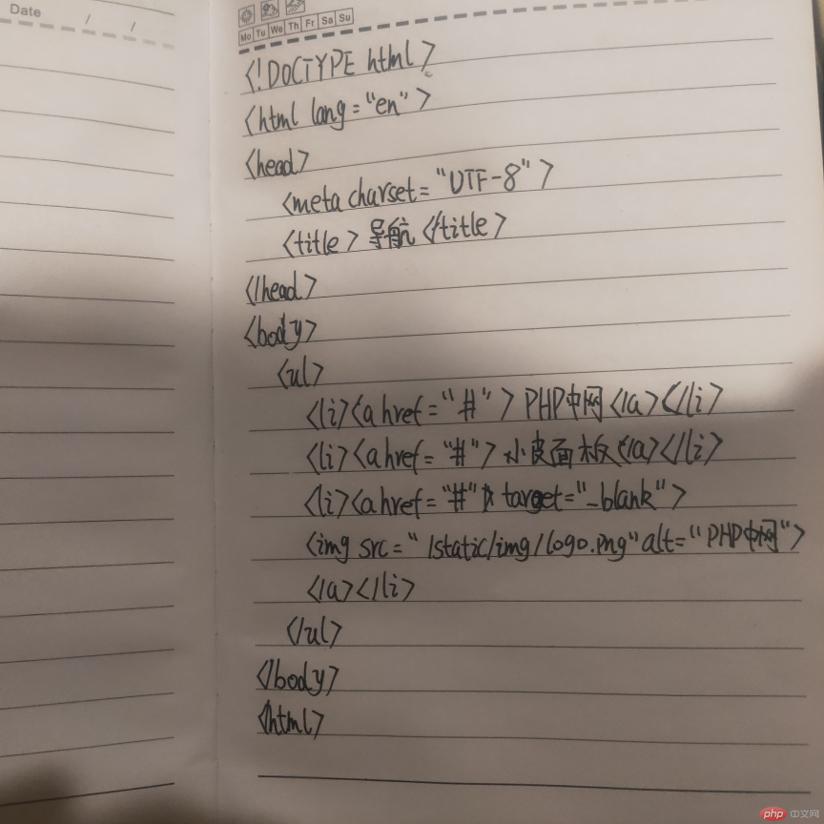 Date / /
Mo Tu We Th Fr Sa Su
<!DOCTYPE html>
<html lang="en">
<head>
<meta charset="UTF-8">
<title>导航</title>
</head>
<body>
<ul>
<li><a href="#">PHP中网</a></li>
<li><a href="#">小皮面板</a></li>
<li><a href="#" target="_blank">
<img src="/static/img/logo.png" alt="PHP中网">
</a></li>
</ul>
</body>
<html>
php 中文网